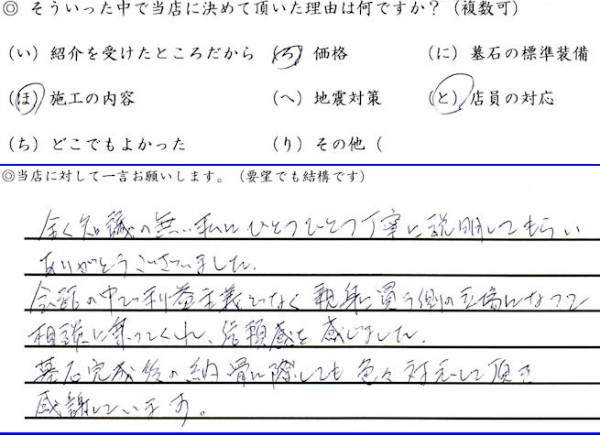 ◎ そういった中で当店に決めて頂いた理由は何ですか？（複数可）
（い）紹介を受けたところだから （ろ）価格 （に）墓石の標準装備
（ほ）施工の内容 （へ）地震対策 （と）店員の対応
（ち）どこでもよかった （り）その他（
◎当店に対して一言お願いします。（要望でも結構です）
全く知識の無い私にひとつひとつ丁寧に説明してもらい
ありがとうございました。
会話の中で利益主義でなく親身に買う側の立場になって
相談に乗ってくれ、信頼感を感じました。
墓石完成後の納骨に際しても色々対応して頂き
感謝しています。